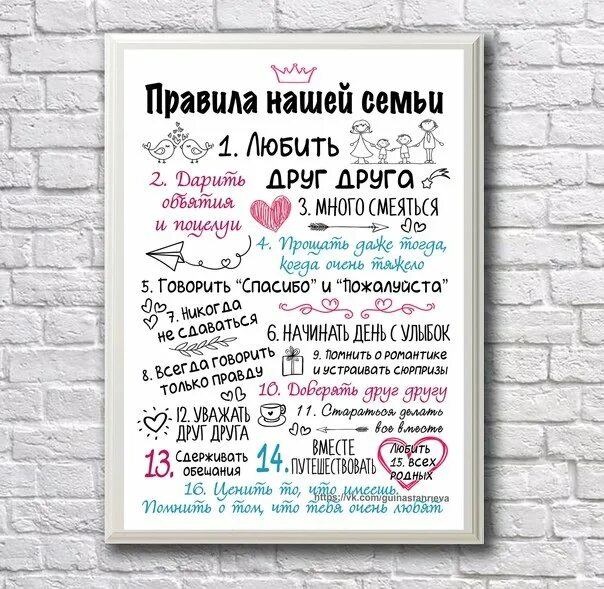 Правила нашей семьи
1. Любить
друг друга
2. Дарить
объятия
и поцелуи
3. Много смеяться
4. Прощать даже тогда,
когда очень тяжело
5. Говорить "Спасибо" и "Пожалуйста"
7. Никогда
не сдаваться
6. Начинать день с улыбок
8. Всегда говорить
только правду
9. Помнить о романтике
и устраивать сюрпризы
10. Доверять друг другу
12. Уважать
друг друга
11. Стараться делать
все вместе
13. Сдерживать
обещания
14. Вместе
путешествовать
Любить
15. всех
родных
16. Ценить то, что имеешь.
https://vk.com/guinastahrieva
Помнить о том, что тебя очень любят